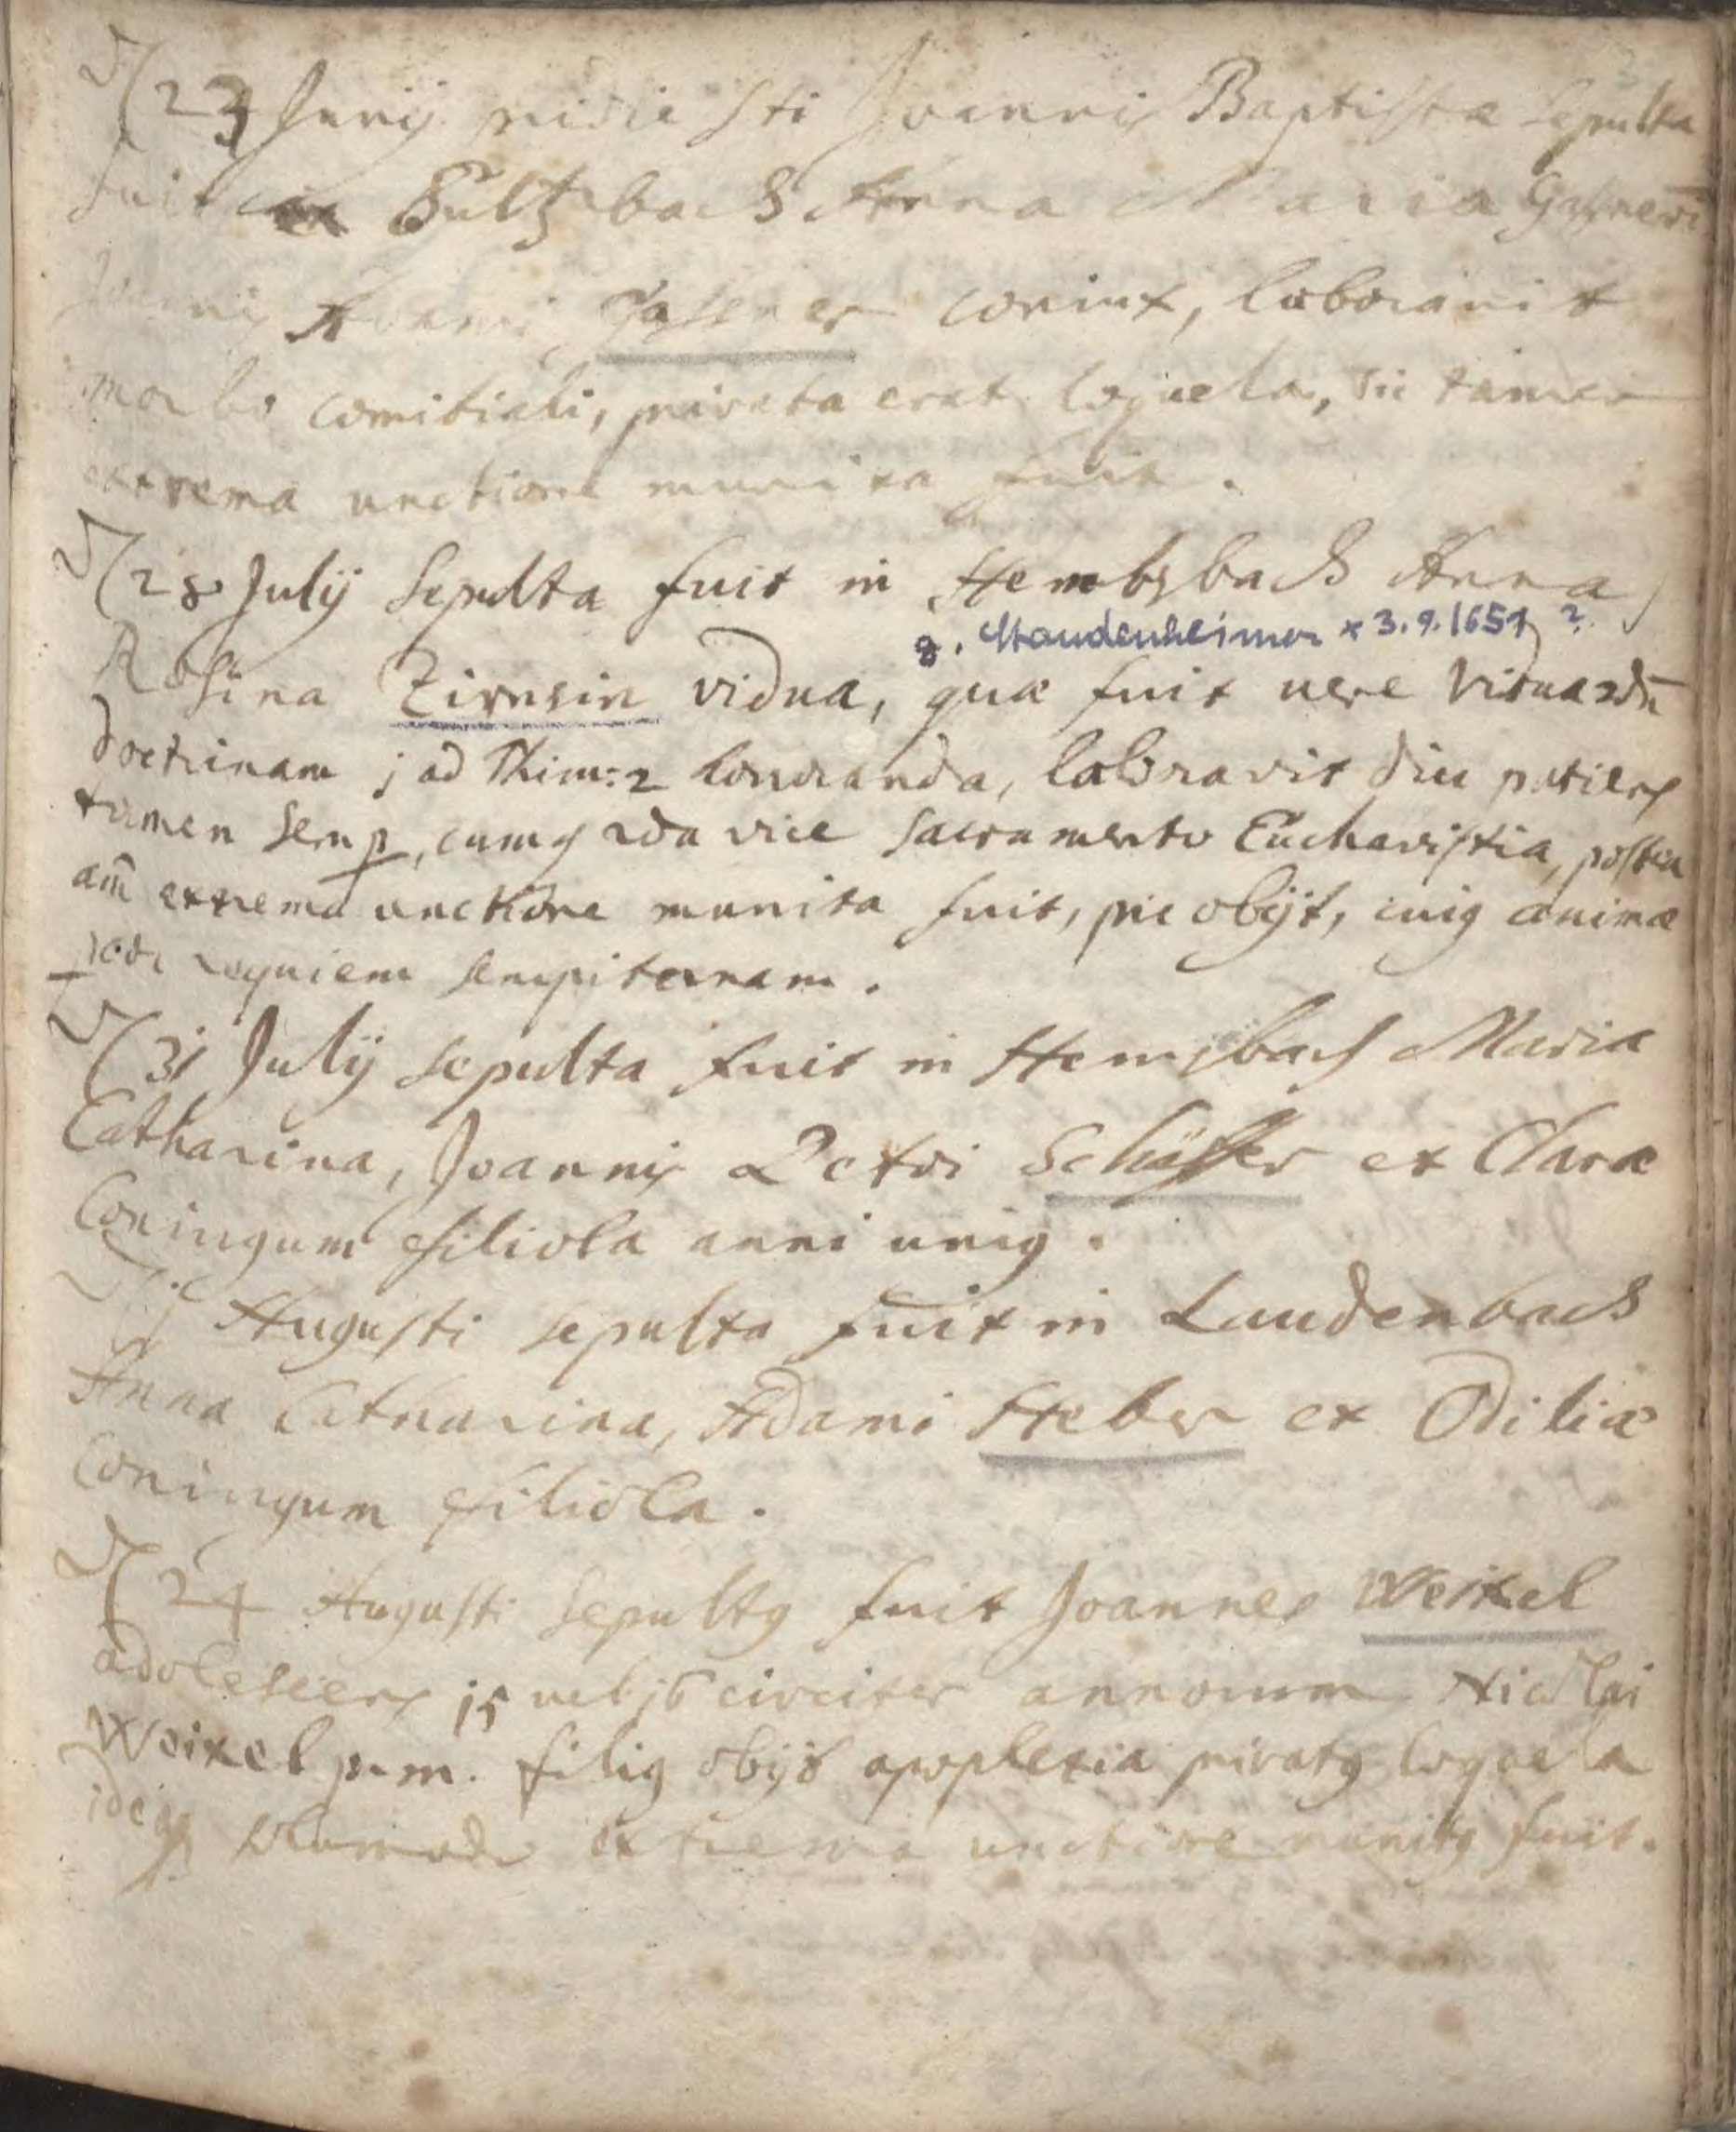 23 Junij pridie Sti Joannis Baptistæ sepulta
fuit in Sultzbach Anna Maria
Joannis Adami Gassner coniux, laboravit
morbo comitiali, privata erat loquela, sic tamen
extrema unctione munita fuit.
28 July sepulta fuit in Hembsbach Anna
g. Staudenheimer x 3.9.1651 ?
Rosina Zirnsin vidua, quæ fuit vere vidua 2dū
doctrinam j ad Thim: 2 honoranda, laboravit diu patiens
tamen semp, cumq 2da vice sacramento Eucharistia, postea
am̄ extrema unctione munita fuit, pie obijt, cuiq animæ
requiem sempiternam.
31 July sepulta fuit in Hemsbach Maria
Catharina, Joannis Petri Schäffer et Claræ
Coniugum filiola anni uniq.
j Augusti sepulta fuit in Laudenbach
Anna Catharina, Adami Heber et Odiliæ
Coniugum filiola.
24 Augusti sepultq fuit Joannes Weixel
adolescens 15 vel j6 circiter annorum Nicolai
Weixel p. m. filiq obijt apoplexia privatq loquela
ideoq extrema unctione munitq fuit.